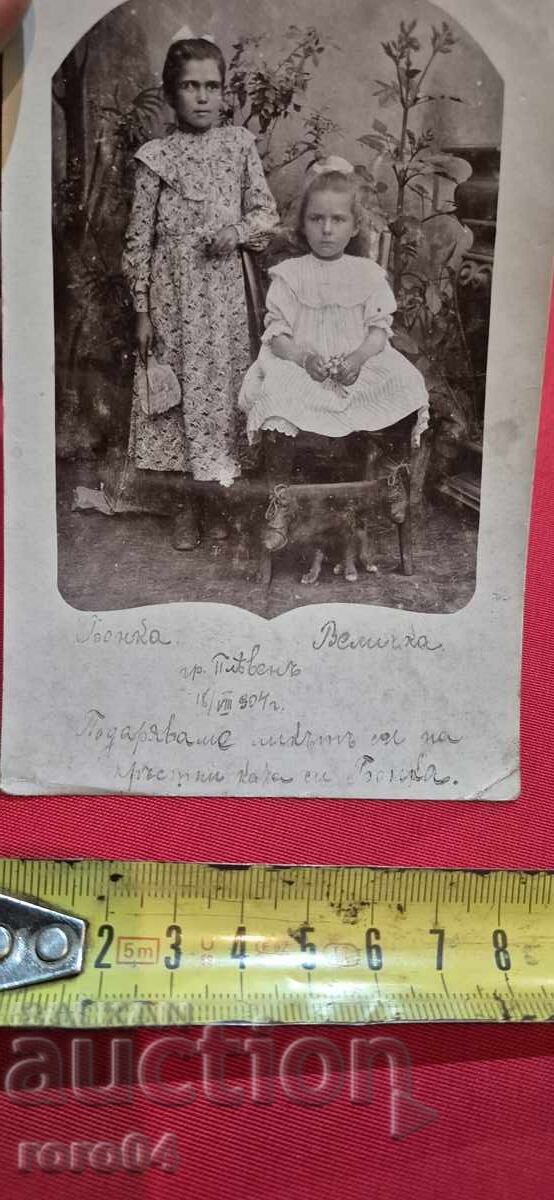 Бонка. Величка.
гр. Плѣвенъ
16/VIII 904 г.
Подаряваме ликътъ си на
кръстни кака си Бонка.
2 5m 3 4 5 6 7 8
BALKAN
auction
roro04